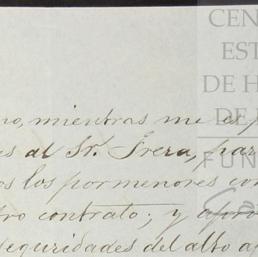 CEN
ES
DE H
DE
FUN
no, mientras me es p
es al Sr. Frera, par
os los pormenores con
tro contrato; y apro
seguridades del alto a